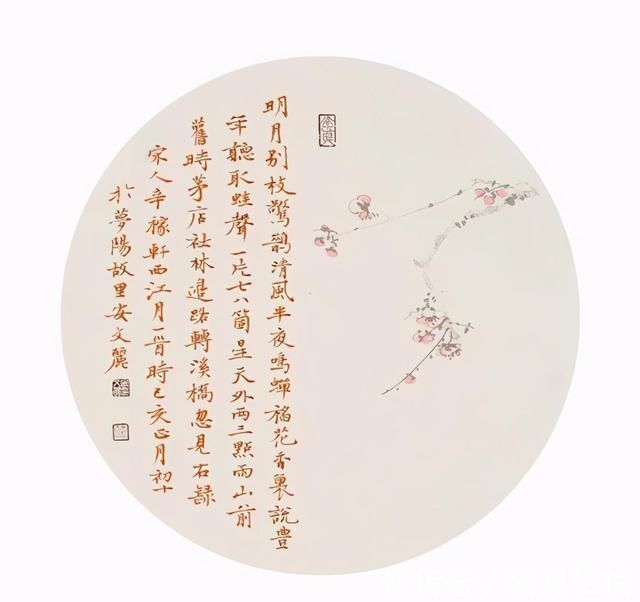 明月别枝驚鵲清風半夜鳴蟬稻花香裏說豊
年聽取蛙聲一片七八箇星天外兩三點雨山前
舊時茅店社林邉路轉溪橋忽見右録
宋人辛稼軒西江月一首時己亥正月初十
於夢陽故里安文麗
快传号 / 明月怡